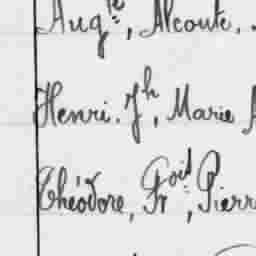 Augte, Alcoute,
Henri. Jh, Marie
Théodore, Fçois, Pierre